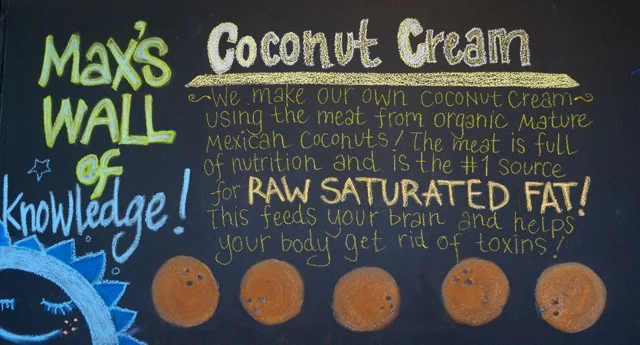 Max's
WALL
of
Knowledge!
Coconut Cream
~We make our own coconut cream~
using the meat from organic mature
Mexican Coconuts! The meat is full
of nutrition and is the #1 source
for RAW SATURATED FAT!
This feeds your brain and helps
your body get rid of toxins!